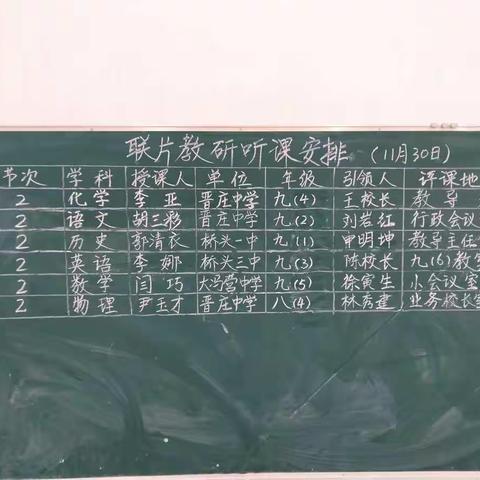 联片教研听课安排 (11月30日)
节次 学科 授课人 单位 年级 引领人 评课地
2 化学 李亚 晋庄中学 九(4) 王校长 教导
2 语文 胡三彩 晋庄中学 九(2) 刘岩红 行政会议
2 历史 郭清衣 桥头一中 九(1) 申明坤 教导主任
2 英语 李娜 桥头三中 九(3) 陈校长 九(6)教室
2 数学 闫巧 大冯营中学 九(5) 徐寅生 小会议室
2 物理 尹玉才 晋庄中学 八(4) 林秀建 业务校长室